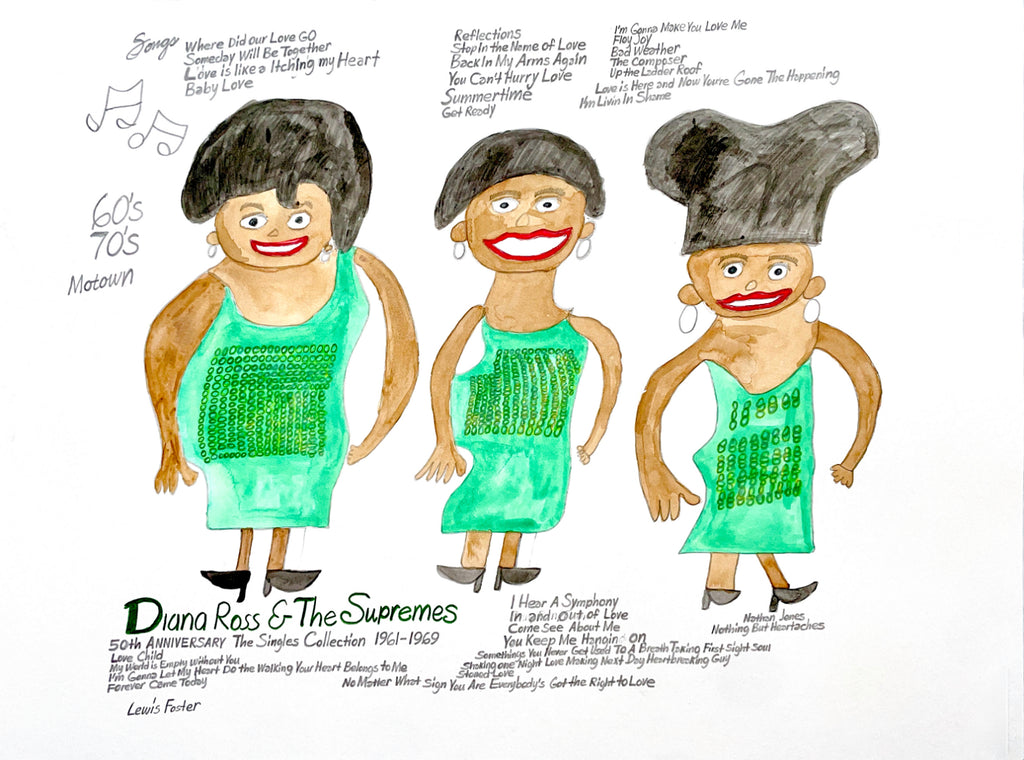 Songs
Where Did our Love GO
Someday Will Be Together
Love is like a Itching my Heart
Baby Love
Reflections
Stop in the Name of Love
Back In My Arms Again
You Can't Hurry Love
Summertime
Get Ready
I'm Gonna Make You Love Me
Floy Joy
Bad Weather
The Composer
Up the Ladder Roof
Love is Here and Now You're Gone The Happening
I'm Livin In Shame
60's
70's
Motown
Diana Ross & The Supremes
50th ANNIVERSARY The Singles Collection 1961-1969
Love Child
My World is Empty Without You
I'm Gonna Let My Heart Do the Walking Your Heart Belongs to Me
Forever Came Today
No Matter What Sign You Are Everybody's Got the Right to Love
I Hear A Symphony
In and Out of Love
Come See About Me
You Keep Me Hangin on
Somethings You Never Get Used To A Breath Taking First Sight Soul
Shaking one Night Love Making Next Day Heartbreaking Guy
Stoned Love
Nathan Jones
Nothing But Heartaches
Lewis Foster